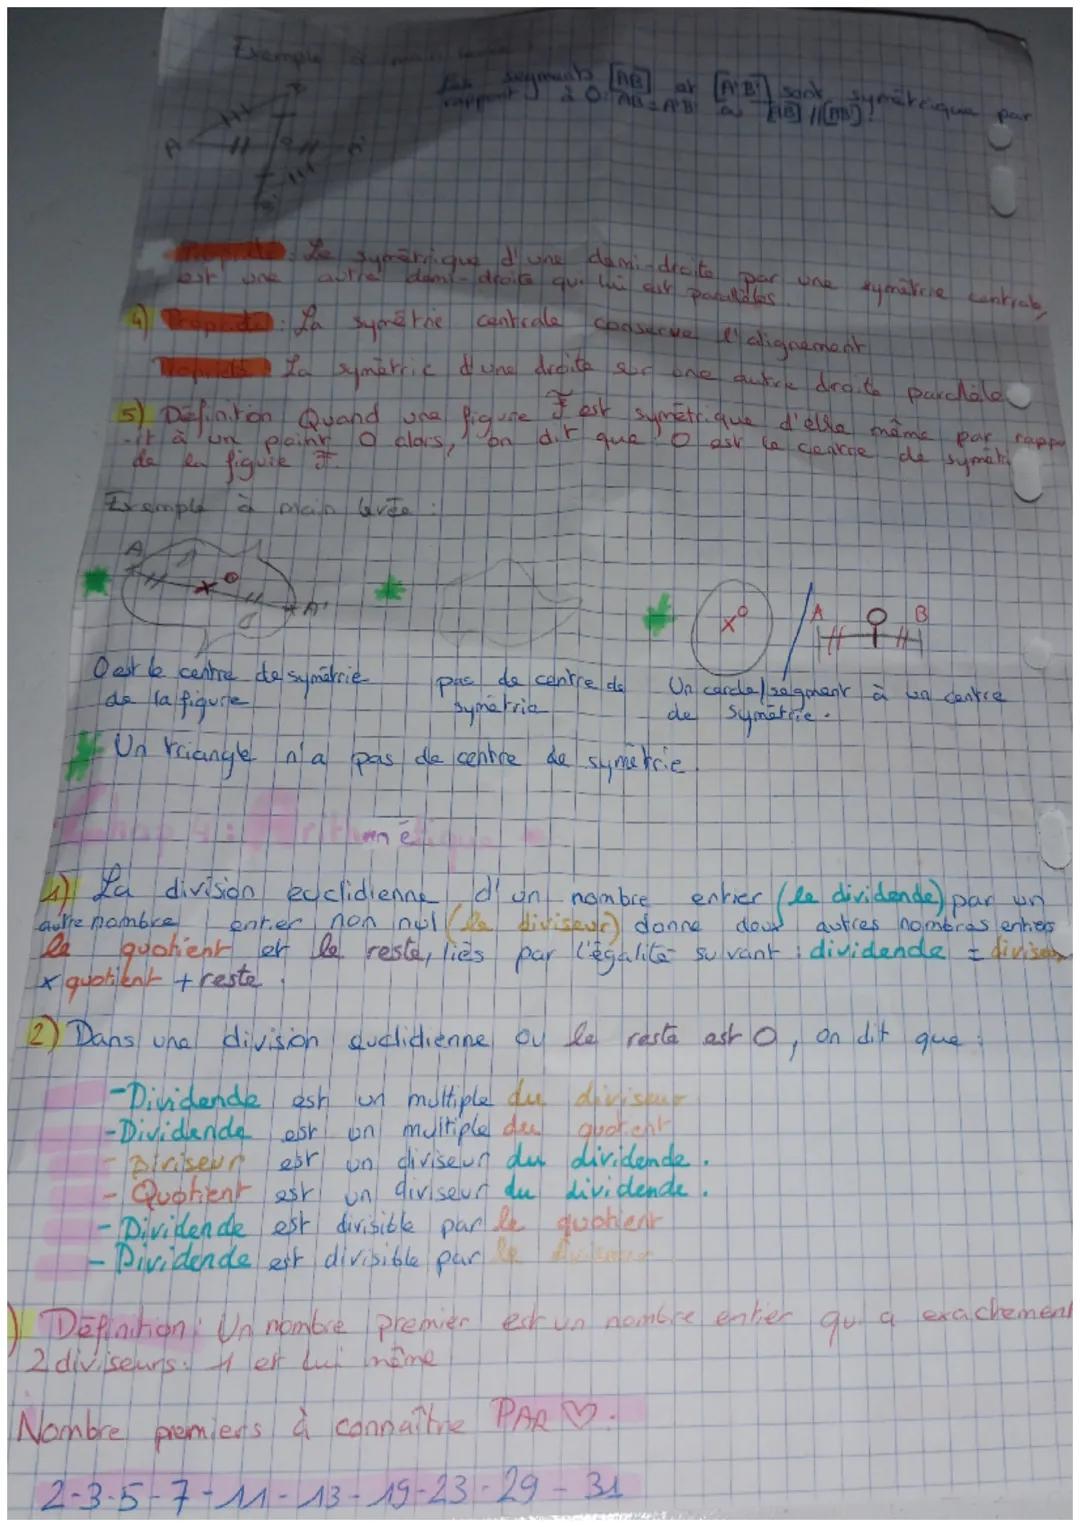 Exemple à main levée
Les segments [AB] et [A'B'] sont symétrique par
rapport à O. AB = A'B' [AB] // [A'B'] !
B
A O A'
B'
Propriété : Le symétrique d'une demi-droite par une symétrie centrale,
est une autre demi-droite qui lui est parallèles.
4) Propriété : La symétrie centrale conserve l'alignement
Propriété La symétric d'une droite sur une autre droite parallèle
5) Définition Quand une figure F est symétrique d'elle même par rappo
-rt à un point O alors, on dit que O est le centre de symétri
de la figure F.
Exemple à main levée :
A O A'
O
A B
O est le centre de symétrie
de la figure
pas de centre de
symétrie
Un cercle/segment à un centre
de symétrie.
Un triangle n'a pas de centre de symétrie.
Arithmétique
1) La division euclidienne d'un nombre entier (le dividende) par un
autre nombre entier non nul (le diviseur) donne deux autres nombres entiers
le quotient et le reste, liés par l'égalité suivant : dividende = diviseur
x quotient + reste.
2) Dans une division euclidienne ou le reste est 0, on dit que :
-Dividende est un multiple du diviseur
-Dividende est un multiple du quotient
- Diviseur est un diviseur du dividende.
- Quotient est un diviseur du dividende.
- Dividende est divisible par le quotient
- Dividende est divisible par le diviseur
) Définition : Un nombre premier est un nombre entier qui a exachement
2 diviseurs. 1 et lui même
Nombre premiers à connaître PAR ♡.
2-3-5-7-11-13-19-23-29-31